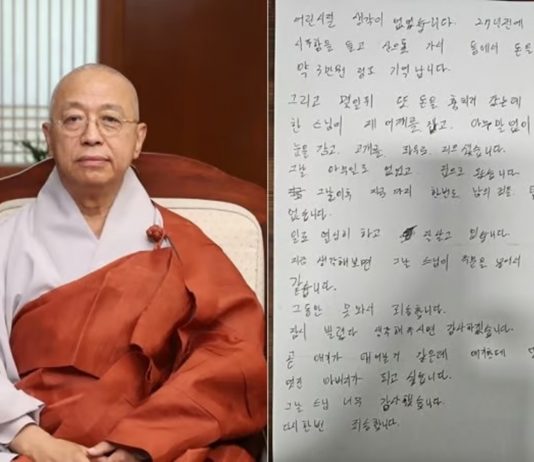 어린시절 생각이 없었습니다. 27년전에
시주함을 들고 산으로 가서 통에서 돈을
약 3만원 정도 기억 납니다.
그리고 몇일뒤 또 돈을 훔치러 갔는데
한 스님이 제 어깨를 잡고, 아무말 없이
눈을 감고, 고개를, 좌우로, 저으셨습니다.
그날 아무일도 없었고 집으로 왔습니다
그날이후 지금 까지 한번도 남의것을
없습니다.
일도 열심이 하고 잘살고 있습니다.
지금 생각해보면 그날 스님이 주문을 넣어서
같습니다.
그동안 못와서 죄송합니다.
잠시 빌렸다 생각해주시면 감사하겠습니다.
곧 애기가 태어날거 같은데 애기한테
아버지가 되고 싶습니다.
그날 스님 너무 감사했습니다.
다시한번 죄송합니다.